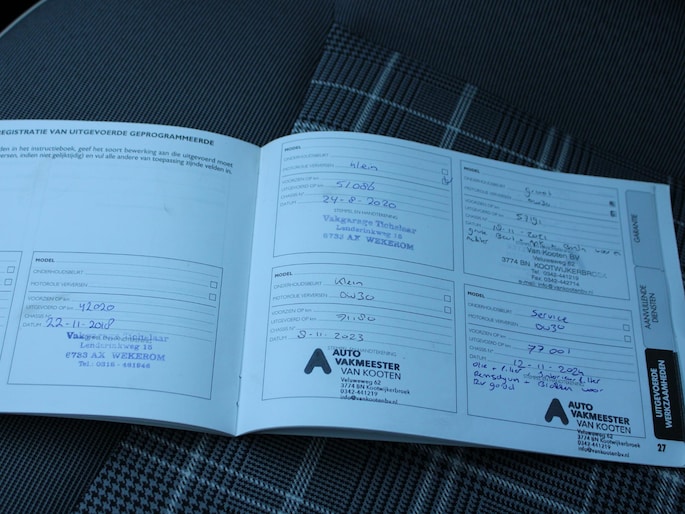 REGISTRATIE VAN UITGEVOERDE GEPROGRAMMEERDE
den in het instructieboek, geef het soort bewerking aan die uitgevoerd moet
en vul alle andere van toepassing zijnde velden in.
MODEL
ONDERHOUDSBEURT
MOTOROLIE VERVERSEN
VOORZIEN OP km
UITGEVOERD OP km 42020
CHASSIS Nr
DATUM 22-11-2018
6733 AX WEKEROM
Tel.: 0318 - 461846
MODEL
ONDERHOUDSBEURT klein
MOTOROLIE VERVERSEN
VOORZIEN OP km
UITGEVOERD OP km 51086
CHASSIS Nr
DATUM 24-8-2020
STEMPEL EN HANDTEKENING
Vakgarage Tichelaar
Lenderinkweg 15
6733 AX WEKEROM
MODEL
ONDERHOUDSBEURT Klein
MOTOROLIE VERVERSEN OW30
VOORZIEN OP km
UITGEVOERD OP km
CHASSIS Nr
DATUM 8-11-2023
AUTO
VAKMEESTER
VAN KOOTEN
Veluweweg 62
3774 BN Kootwijkerbroek
0342-441219
info@vankootenbv.nl
MODEL
ONDERHOUDSBEURT groot
MOTOROLIE VERVERSEN
VOORZIEN OP km
UITGEVOERD OP km
CHASSIS Nr
DATUM
Van Kooten BV
Veluweweg 62
3774 BN KOOTWIJKERBROEK
Tel. 0342-441219
Fax 0342-442714
e-mail: info@vankootenbv.nl
MODEL
ONDERHOUDSBEURT Service
MOTOROLIE VERVERSEN OW30
VOORZIEN OP km
UITGEVOERD OP km 77001
CHASSIS Nr
DATUM 12-11-2024
AUTO
VAKMEESTER
VAN KOOTEN
Veluweweg 62
3774 BN Kootwijkerbroek
0342-441219
info@vankootenbv.nl
GARANTIE
AANVULLENDE
DIENSTEN
UITGEVOERDE
WERKZAAMHEDEN
27